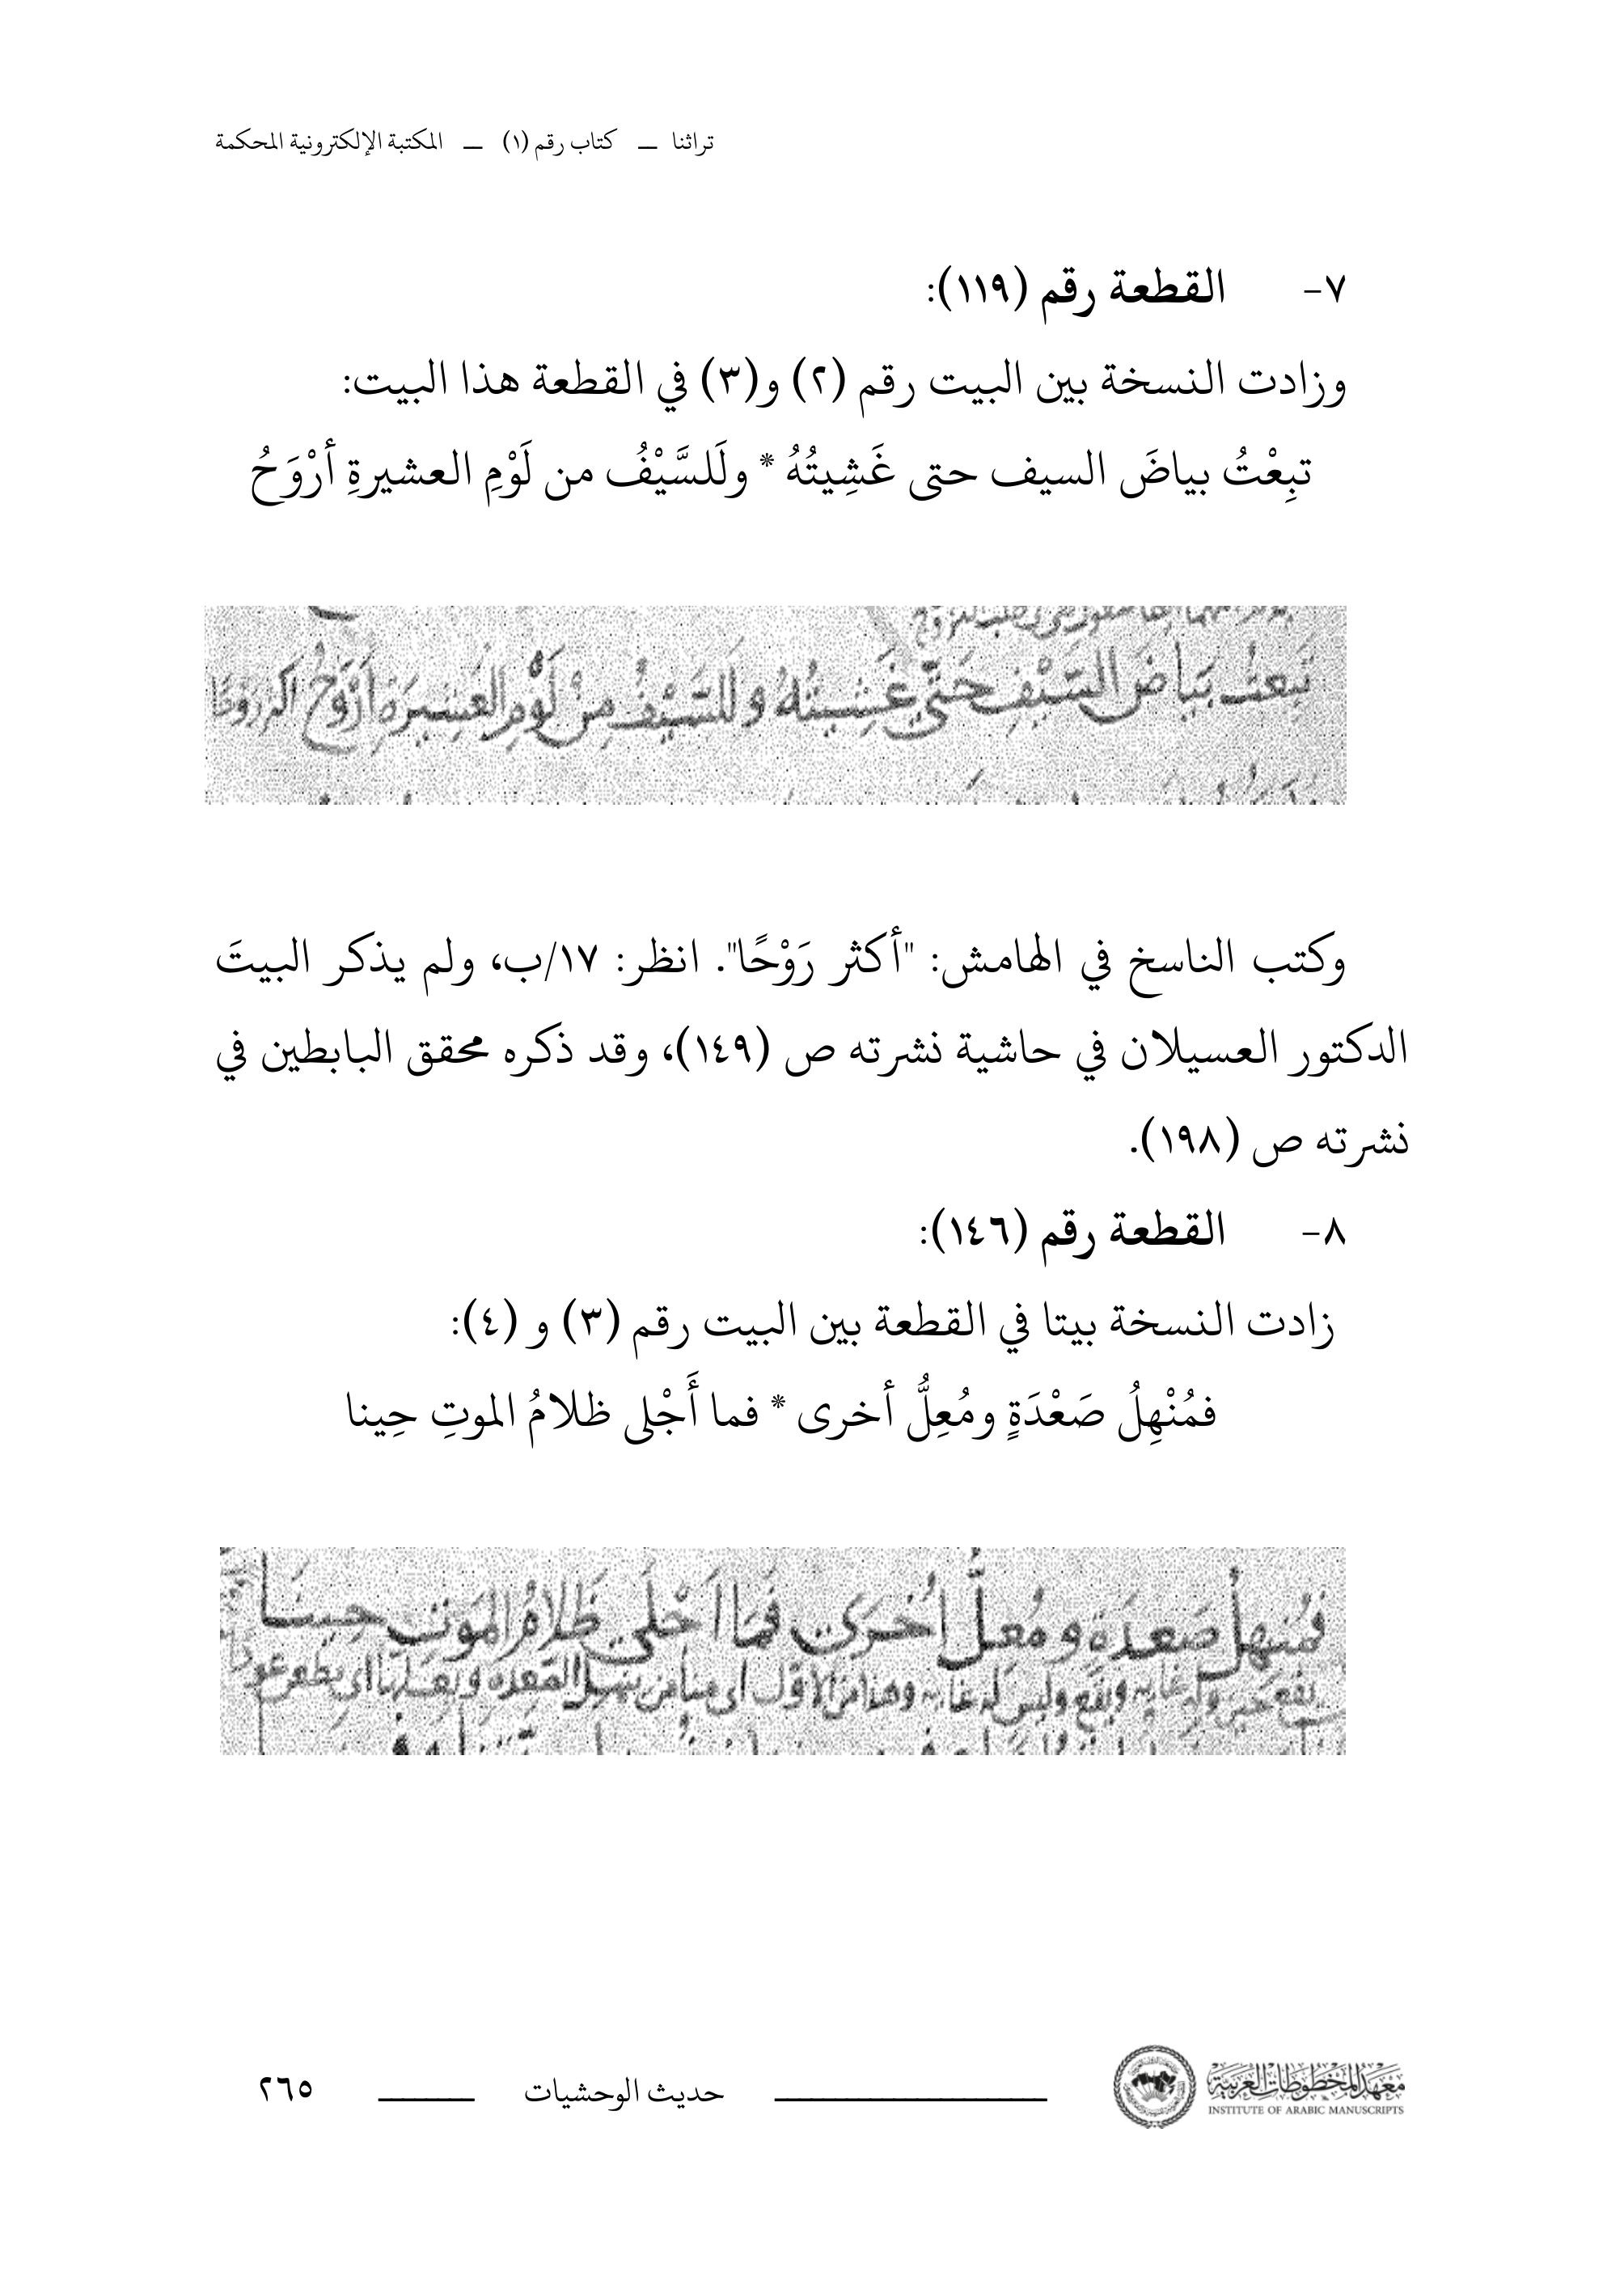 تراثنا — كتاب رقم (١) — المكتبة الإلكترونية المحكمة
٧- القطعة رقم (١١٩):
وزادت النسخة بين البيت رقم (٢) و(٣) في القطعة هذا البيت:
تبِعْتُ بياضَ السيف حتى غَشِيتُهُ * ولَلسَّيْفُ من لَوْمِ العشيرةِ أرْوَحُ
تَبِعتُ بَيَاضَ السَّيْفِ حَتَّى غَشِيتُهُ وَللسَّيْفُ مِنْ لَوْمِ العَشِيرَةِ أَرْوَحُ اكثر رَوْحًا
وكتب الناسخ في الهامش: "أكثر رَوْحًا". انظر: ١٧/ب، ولم يذكر البيتَ
الدكتور العسيلان في حاشية نشرته ص (١٤٩)، وقد ذكره محقق البابطين في
نشرته ص (١٩٨).
٨- القطعة رقم (١٤٦):
زادت النسخة بيتا في القطعة بين البيت رقم (٣) و (٤):
فمُنْهِلُ صَعْدَةٍ ومُعِلُّ أخرى * فما أَجْلى ظلامُ الموتِ حِينا
فمُنهِلُ صَعدَةٍ ومُعِلُّ اُخرَى فَمَا اَجْلَى ظَلَامُ المَوتِ حِينَا
حديث الوحشيات
٢٦٥
معهد المخطوطات العربية
INSTITUTE OF ARABIC MANUSCRIPTS